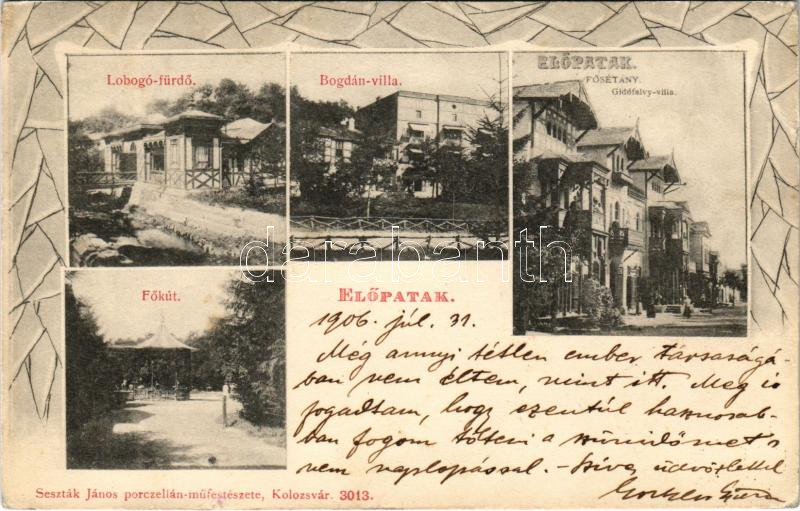 Lobogó-fürdő.
Bogdán-villa.
ELŐPATAK.
FŐSÉTÁNY.
Gidófalvy-villa.
Főkút.
ELŐPATAK.
1906. júl. 31.
Még annyi tétlen ember társaságá-
ban nem éltem, mint itt. Meg is
fogadtam, hogy ezentúl hasznosab-
ban fogom tölteni a szünidőmet s
nem naplopással. – Szíves üdvözlettel
darabanth
Seszták János porczellán-műfestészete, Kolozsvár. 3013.